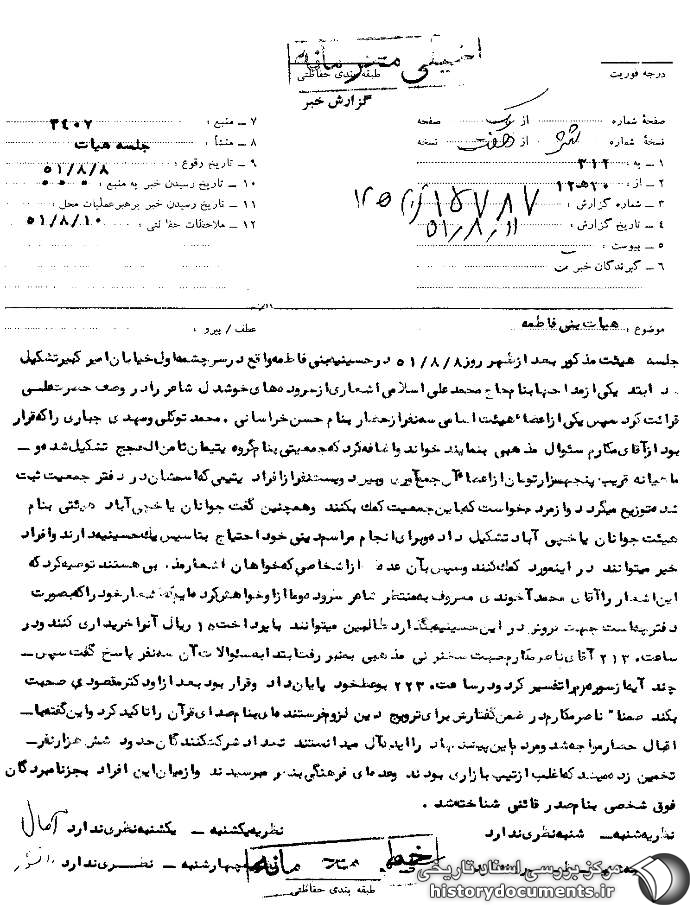 خیلی محرمانه
طبقه بندی حفاظتی
گزارش خبر
درجه فوریت
صفحهٔ شماره از یک صفحه
نسخهٔ شماره شش از هفت نسخه
۱ ـ به : ۳۱۲
۲ ـ از : ۱۲ه۲۰
۳ ـ شماره گزارش : ۱۵۷۸۷
۴ ـ تاریخ گزارش :
۵ ـ پیوست :
۶ ـ گیرندگان خبر
۷ ـ منبع : ۳۴۰۷
۸ ـ منشأ : جلسه هیات
۹ ـ تاریخ وقوع : ۵۱/۸/۸
۱۰ ـ تاریخ رسیدن خبر به منبع :
۱۱ ـ تاریخ رسیدن خبر برهبرعملیات محل :
۱۲ ـ ملاحظات حفاظتی : ۵۱/۸/۱۰
موضوع : هیات بنی فاطمه
عطف / پیرو :
جلسه هیئت مذکور بعد از ظهر روز ۵۱/۸/۸ در حسینیه بنی فاطمه واقع در سرچشمه اول خیابان امیر کبیر تشکیل
در ابتدا یکی از مداحها بنام حاج محمد علی اسلامی اشعاری از سروده های خوشدل شاعر را در وصف حضرت علی
قرائت کرد سپس یکی از اعضاء هیئت اسامی سه نفر از حضار بنام حسن خراسانی ، محمد توکلی و مهدی جباری را که قرار
بود از آقای مکارم سئوال مذهبی بنمایند خواند و اضافه کرد که جمعیتی بنام گروه یتیمان ثامن الحجج تشکیل شده و ـ
ماهیانه قریب پنجهزار تومان از اعضا آن جمع آوری و بین دویست نفر از افراد یتیمی که اسمشان در دفتر جمعیت ثبت
شده توزیع میگردد و از مردم خواست که باین جمعیت کمک بکنند وهمچنین گفت جوانان یاخچی آباد هیئتی بنام
هیئت جوانان یاخچی آباد تشکیل داده و برای انجام مراسم دینی خود احتیاج بتاسیس یک حسینیه دارند و افراد
خیر میتوانند در اینمورد کمک کنند و سپس بآن عده از اشخاصی که خواهان اشعار مذهبی هستند توصیه کرد که
این اشعار را آقای محمد آخوندی معروف به منتظر شاعر سروده و ما از او خواهش کرده ایم که اشعار خود را که بصورت
دفترچه است جهت فروش در این حسینیه بگذارد طالبین میتوانند با پرداخت ۱۰ ریال آنرا خریداری کنند و در
ساعت ۲۱۳۰ آقای ناصر مکارم جهت سخنرانی مذهبی به منبر رفت ابتدا به سئوالات آن سه نفر پاسخ گفت سپس ـ
چند آیه از سوره مریم را تفسیر کرد و در ساعت ۲۲۳۰ بوعظ خود پایان داد وقرار بود بعد از او دکتر مقصودی صحبت
بکند ضمنا" ناصر مکارم در ضمن گفتارش برای ترویج دین لزوم فرستنده ای بنام صدای قرآن را تاکید کرد و این گفته با ـ
اقبال حضار مواجه شد و مردم این پیشنهاد را ایده آل میدانستند تعداد شرکت کنندگان حدود شش هزار نفر ـ
تخمین زده میشد که اغلب از تیپ بازاری بودند وعده ای فرهنگی بنظر میرسیدند و از میان این افراد بجز نامبردگان
فوق شخصی بنام صدر قائنی شناخته شد .
نظریه شنبه ـ شنبه نظری ندارد
نظریه یکشنبه ـ یکشنبه نظری ندارد
چهارشنبه ـ نظری ندارد
خیلی محرمانه
طبقه بندی حفاظتی
مرکز بررسی اسناد تاریخی
historydocuments.ir